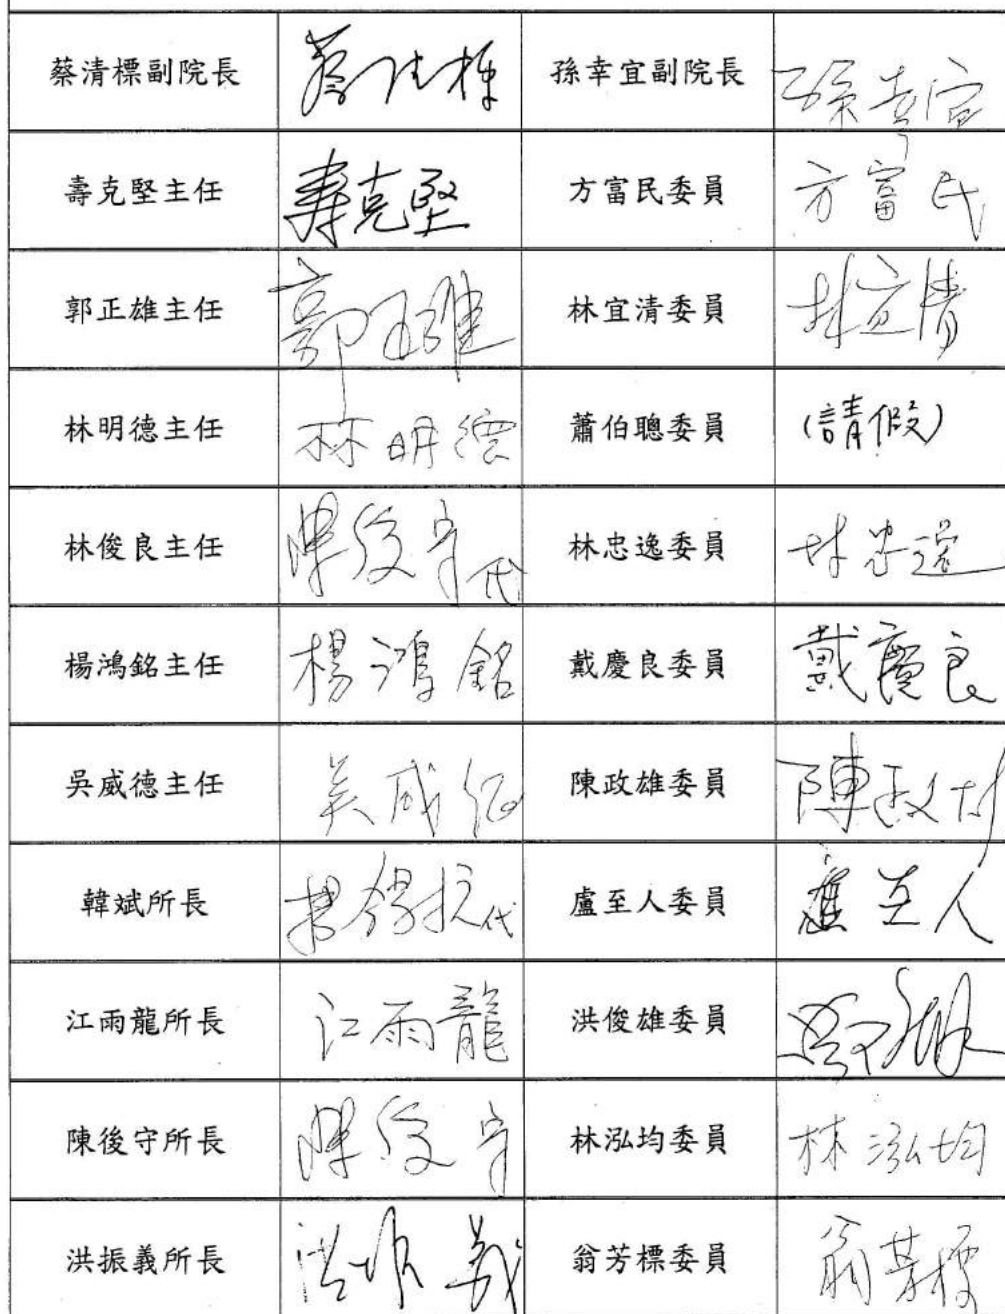 蔡清標副院長 蔡清標 孫幸宜副院長 孫幸宜
壽克堅主任 壽克堅 方富民委員 方富民
郭正雄主任 郭正雄 林宜清委員 林宜清
林明德主任 林明德 蕭伯聰委員 (請假)
林俊良主任 陳後守代 林忠逸委員 林忠逸
楊鴻銘主任 楊鴻銘 戴慶良委員 戴慶良
吳威德主任 吳威德 陳政雄委員 陳政雄
韓斌所長 代 盧至人委員 盧至人
江雨龍所長 江雨龍 洪俊雄委員
陳後守所長 陳後守 林泓均委員 林泓均
洪振義所長 洪振義 翁芳標委員 翁芳標